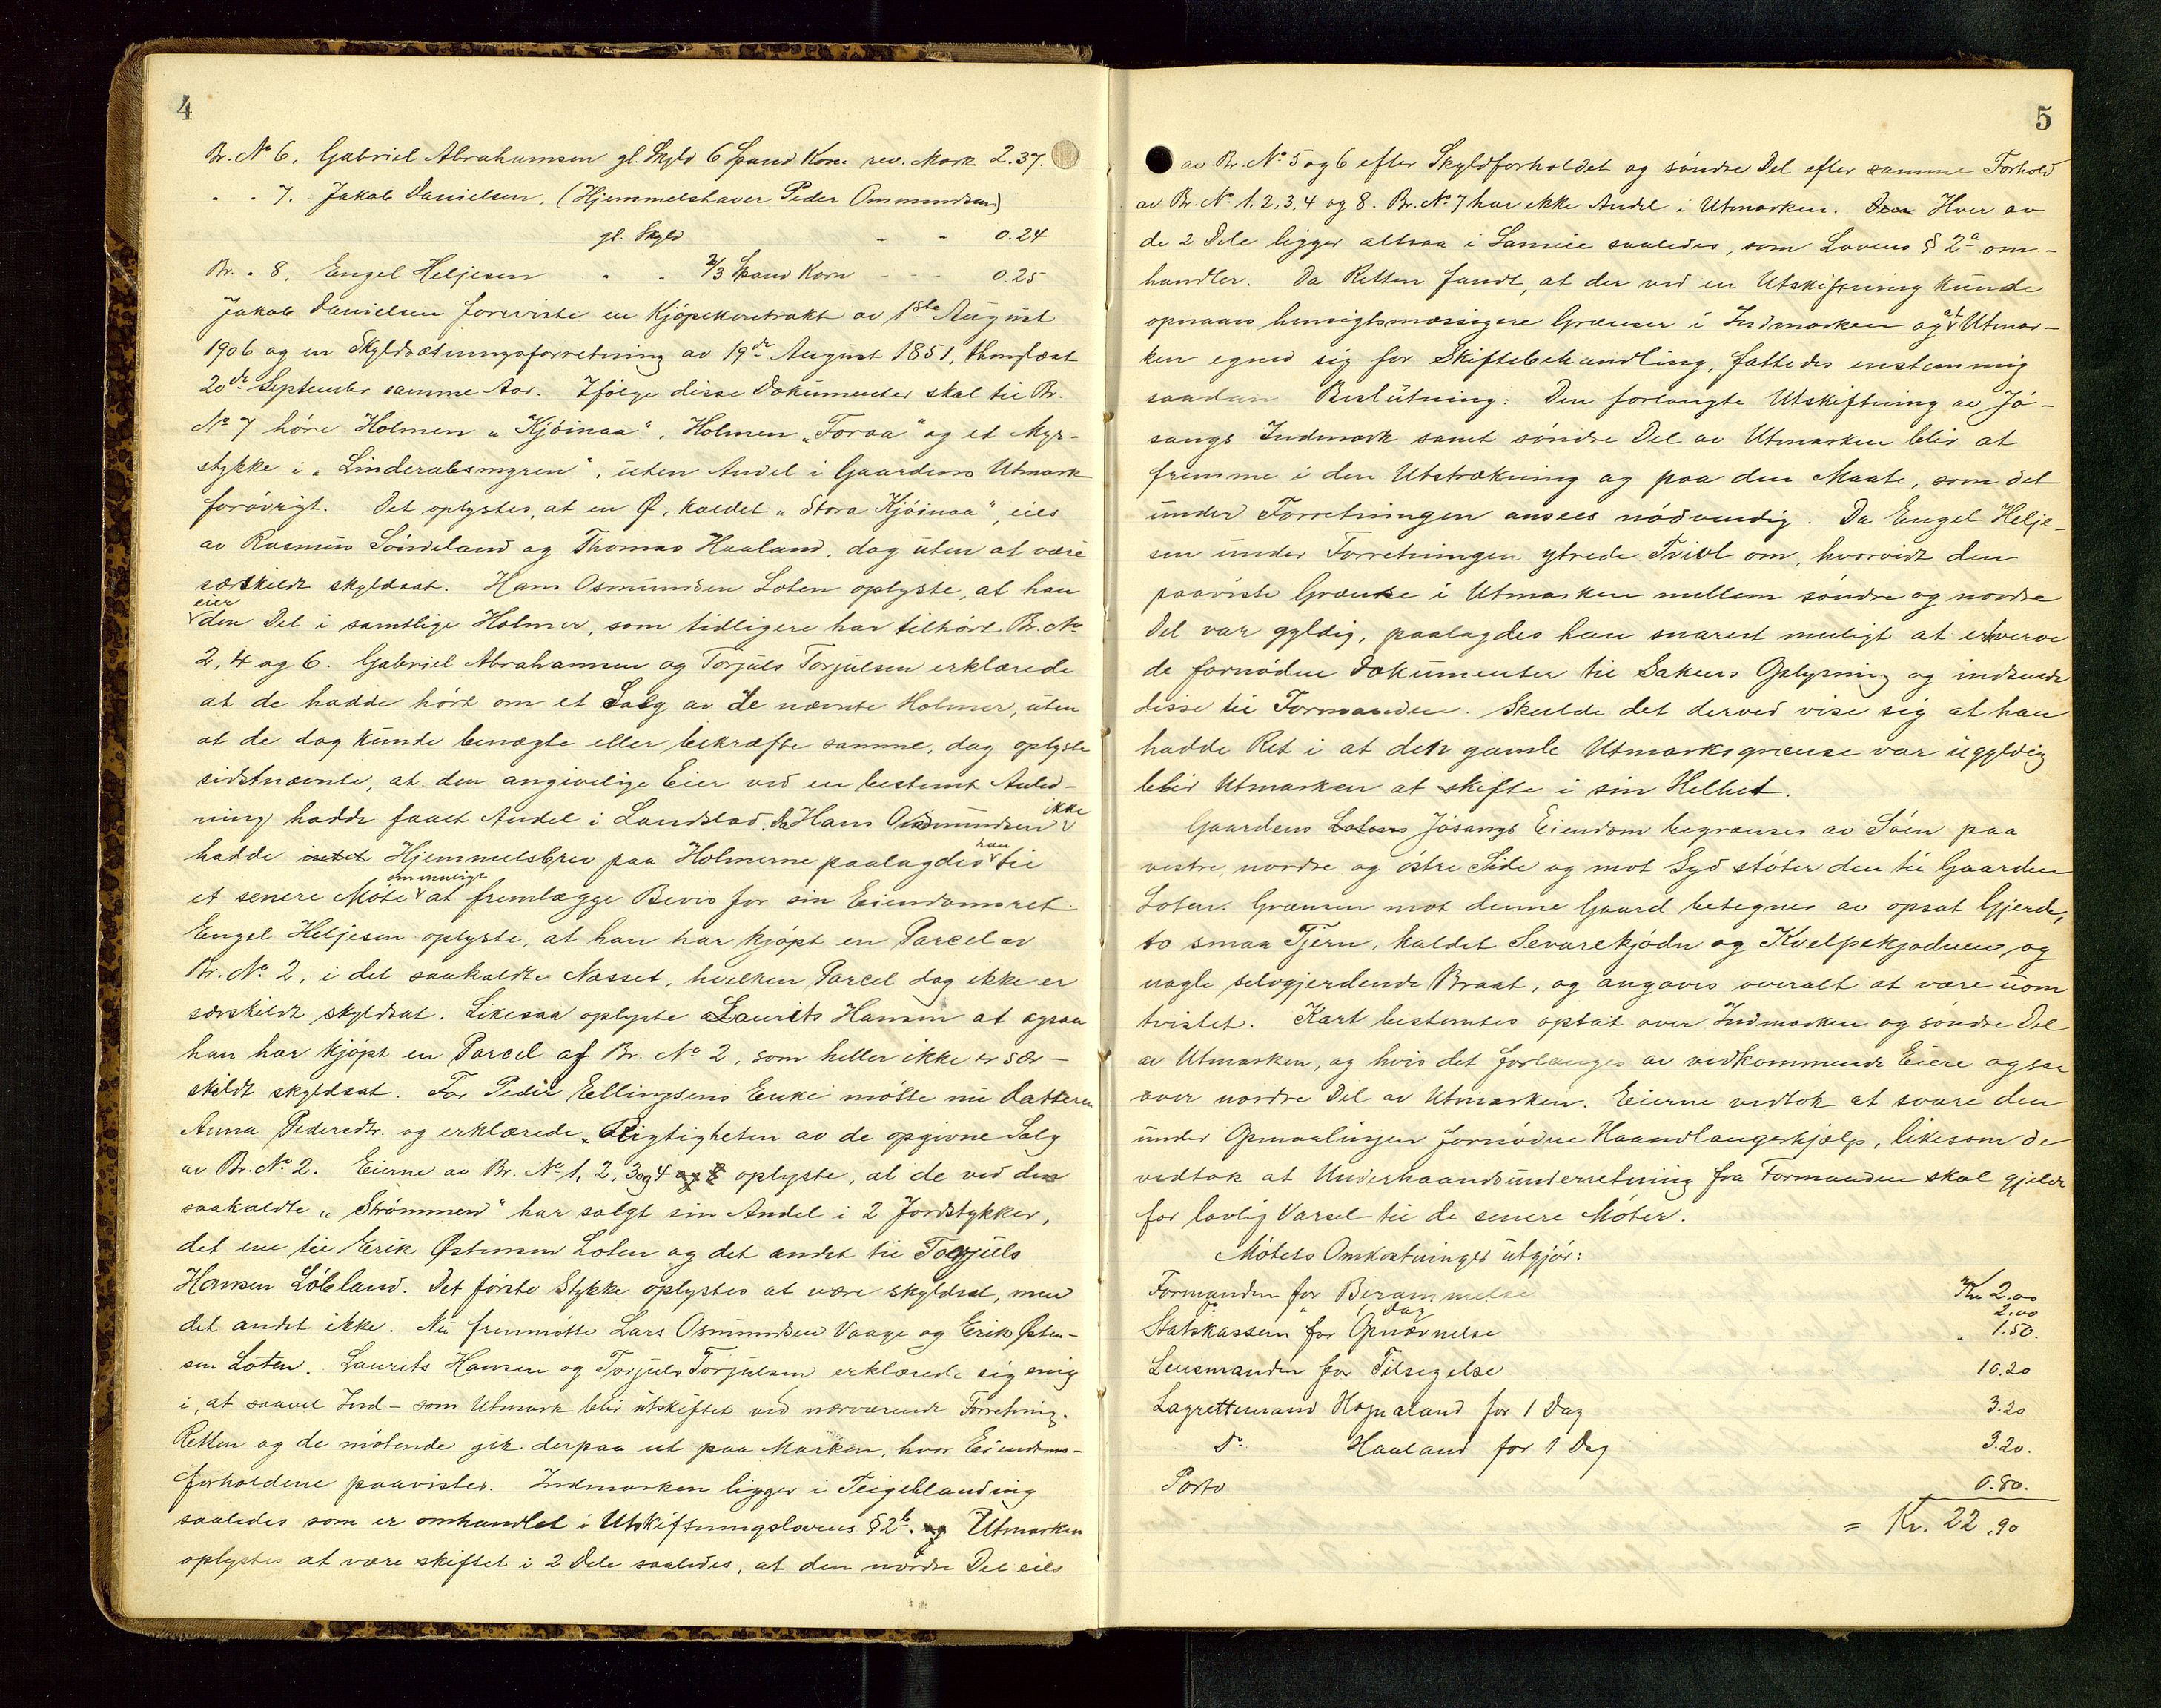 4
Br. No 6, Gabriel Abrahamsen gl. Skyld 6 Spand Korn rev. Mark 2.37.
" " 7. Jakob Danielsen, (Hjemmelshaver Peder Ommundsen)
gl. Skyld " " 0.24
Br. " 8, Engel Heljesen " " 2/3 Spand Korn - - - 0.25
Jakob Danielsen foreviste en Kjøpekontrakt av 1ste August
1906 og en Skyldsætningsforretning av 19de August 1851, thinglæst
20de September samme Aar. Ifølge disse Dokumenter skal til Br.
No 7 høre Holmen „Kjøinaa“, Holmen „Foraa“ og et Myr-
stykke i „Linderabsmyren“, uten Andel i Gaardens Utmark
forøvrigt. Det oplystes, at en Ø, kaldet „Stora Kjøinaa“, eies
av Rasmus Søndeland og Thomas Haaland, dog uten at være
særskildt skyldsat. Hans Osmundsen Loten oplyste, at han
eier
den Del i samtlige Holmer, som tidligere har tilhørt Br. No
2, 4 og 6. Gabriel Abrahamsen og Torjuls Torjulsen erklærede
at de hadde hørt om et Salg av de nævnte Holmer, uten
at de dog kunde benægte eller bekræfte samme, dog oplyste
sidstnævnte, at den angivelige Eier ved en bestemt Anled-
ikke
ning hadde faaet Andel i Landslod. Da Hans Osmundsen
han
hadde intet Hjemmelsbrev paa Holmerne paalagdes til
om muligt
et senere Møte at fremlægge Bevis for sin Eiendomsret.
Engel Heljesen oplyste, at han har kjøpt en Parcel av
Br. No 2, i det saakaldte Nasset, hvilken Parcel dog ikke er
særskildt skyldsat. Likesaa oplyste Laurits Hansen at ogsaa
han har kjøpt en Parcel af Br. No 2, som heller ikke er sær-
skildt skyldsat. For Peder Ellingsens Enke møtte nu Datteren
Anna Pedersdtr. og erklærede Rigtigheten av de opgivne Salg
av Br. No 2. Eierne av Br. No 1, 2, 3 og 4 og 8 oplyste, at de ved den
saakaldte „Strømmen“ har solgt sin Andel i 2 Jordstykker,
det ene til Erik Østensen Loten og det andet til Torjuls
Hansen Løland. Det første Stykke oplystes at være skyldsat, men
det andet ikke. Nu fremmøtte Lars Osmundsen Vaage og Erik Østen-
sen Loten. Laurits Hansen og Torjuls Torjulsen erklærede sig enig
i, at saavel Ind- som Utmark blir utskiftet ved nærværende Forretning.
Retten og de møtende gik derpaa ut paa Marken, hvor Eiendoms-
forholdene paavistes. Indmarken ligger i Teigeblanding
saaledes som er omhandlet i Utskiftningslovens § 2b. og Utmarken
oplystes at være skiftet i 2 Dele saaledes, at den nordre Del eies
5
av Br. No 5 og 6 efter Skyldforholdet og søndre Del efter samme Forhold
av Br. No 1. 2, 3, 4 og 8. Br. No 7 har ikke Andel i Utmarken. Den Hver av
de 2 Dele ligger altsaa i Sameie saaledes, som Lovens § 2a om-
handler. Da Retten fandt, at der ved en Utskiftning kunde
opnaaes hensigtsmæssigere Grænser i Indmarken og at Utmar-
ken egned sig for Skiftebehandling, fattedes enstemmig
saadan Beslutning: Den forlangte Utskiftning av Jø-
sangs Indmark samt søndre Del av Utmarken blir at
fremme i den Utstrækning og paa den Maate, som det
under Forretningen ansees nødvendig. Da Engel Helje-
sen under Forretningen ytrede Tvivl om, hvorvidt den
paaviste Grænse i Utmarken mellem søndre og nordre
Del var gyldig, paalagdes han snarest muligt at erhverve
de fornødne Dokumenter til Sakens Oplysning og indsende
disse til Formanden. Skulde det derved vise sig at han
hadde Ret i at den gamle Utmarksgrænse var ugyldig
blir Utmarken at skifte i sin Helhet.
Gaardens Lotens Jøsangs Eiendom begrænses av Søen paa
vestre, nordre og østre Side og mot Syd støter den til Gaarden
Loten. Grænsen mot denne Gaard betegnes av opsat Gjerde,
to smaa Tjern, kaldet Sevarekjødn og Kvelpekjødnen, og
nogle selvgjerdende Braat, og angaves overalt at være uom
tvistet. Kart bestemtes optat over Indmarken og søndre Del
av Utmarken, og hvis det forlanges av vedkommende Eiere ogsaa
over nordre Del av Utmarken. Eierne vedtok at svare den
under Opmaalingen fornødne Haandlangerhjælp, likesom de
vedtok at Underhaandsunderretning fra Formanden skal gjelde
for lovlig Varsel til de senere Møter.
Møtets Omkostninger utgjør:
Formanden for Berammelse Kr 2.00
Do " 1 Dag 2.00
Statskassen for Opnævnelse " 1.50.
Lensmanden for Tilsigelse 10.20
Lagrettemand Hognaland for 1 Dag 3.20
Do Haaland for 1 Dag 3.20.
Porto 0.80.
= Kr. 22.90